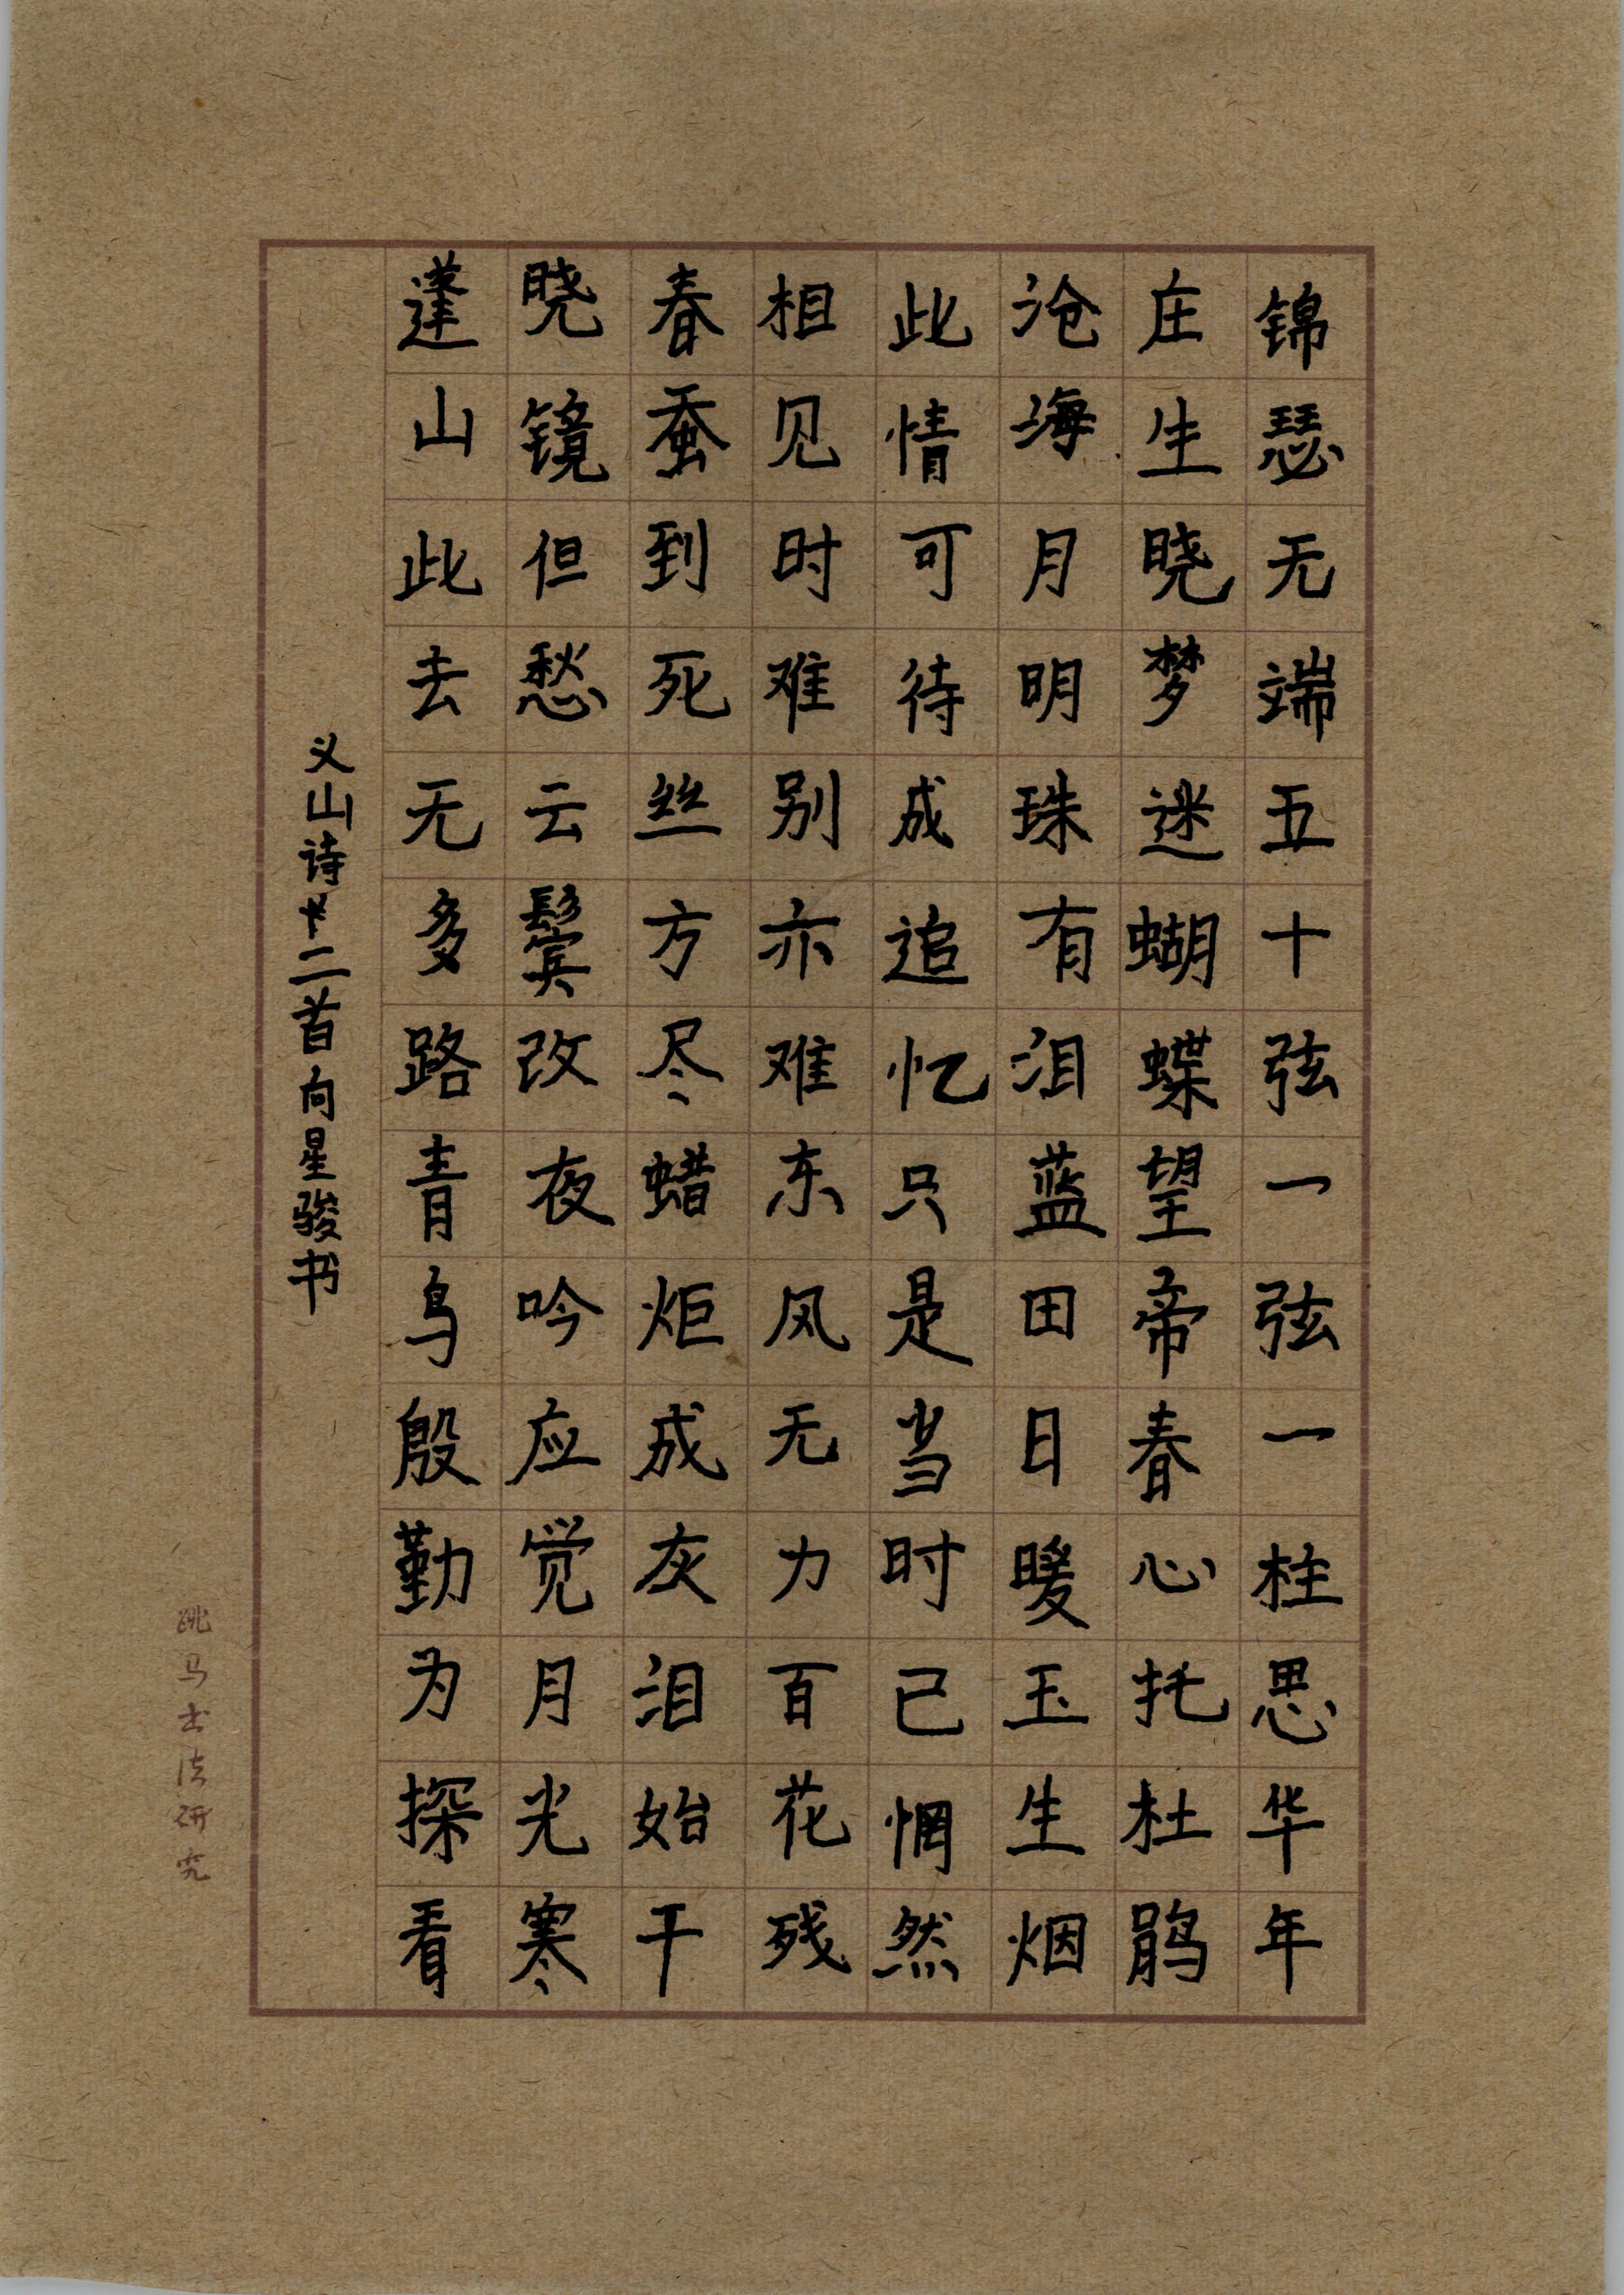 锦瑟无端五十弦一弦一柱思华年
庄生晓梦迷蝴蝶望帝春心托杜鹃
沧海月明珠有泪蓝田日暖玉生烟
此情可待成追忆只是当时已惘然
相见时难别亦难东风无力百花残
春蚕到死丝方尽蜡炬成灰泪始干
晓镜但愁云鬓改夜吟应觉月光寒
蓬山此去无多路青鸟殷勤为探看
义山诗二首向星骏书
马士法研究